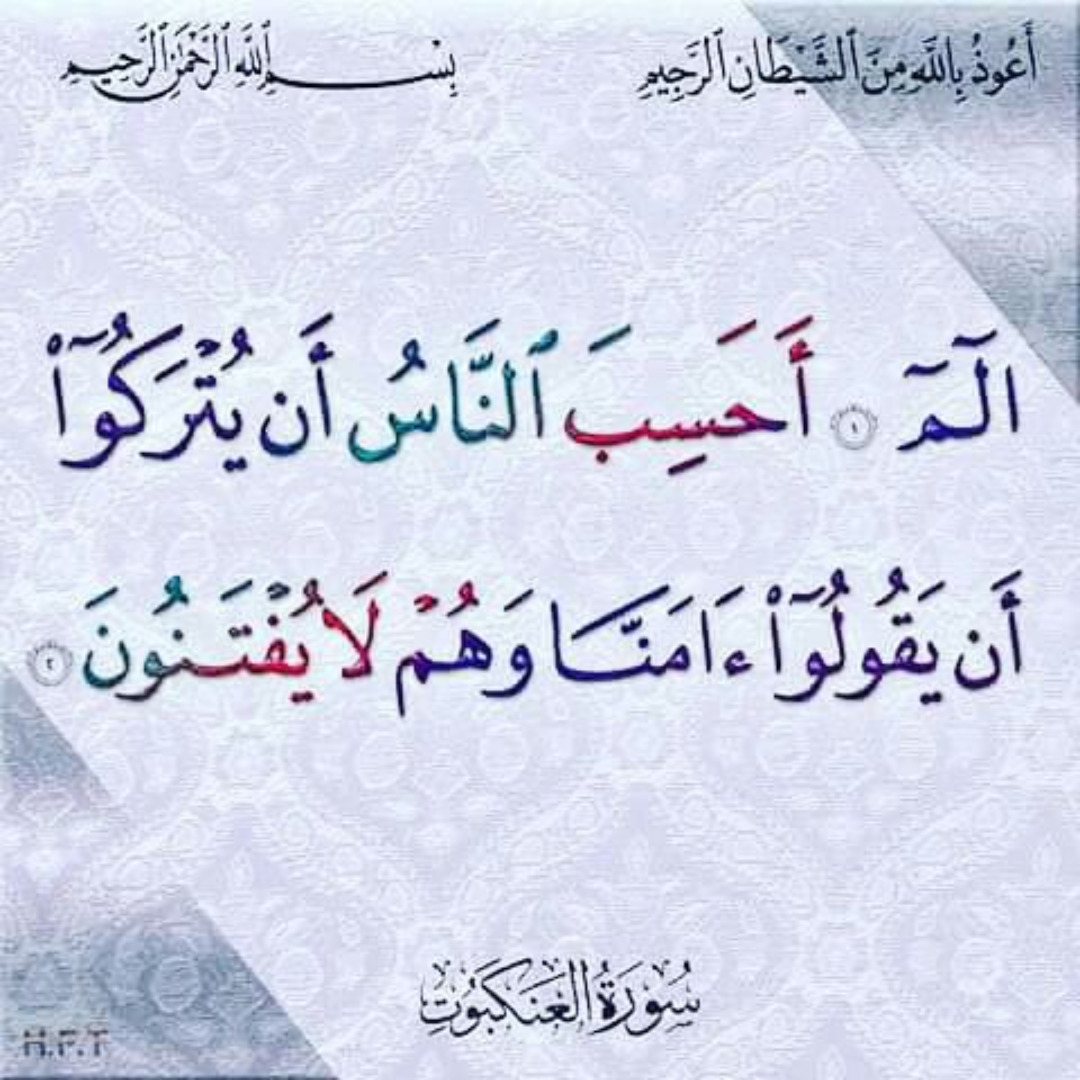 أَعُوذُ بِاللَّهِ مِنَ ٱلشَّيْطَانِ ٱلرَّجِيمِ بِسْمِ ٱللَّهِ ٱلرَّحْمَٰنِ ٱلرَّحِيمِ
الٓمٓ ١ أَحَسِبَ ٱلنَّاسُ أَن يُتْرَكُوٓا۟
أَن يَقُولُوٓا۟ ءَامَنَّا وَهُمْ لَا يُفْتَنُونَ ٢
سُورَةُ العَنكَبُوتِ
H.F.T